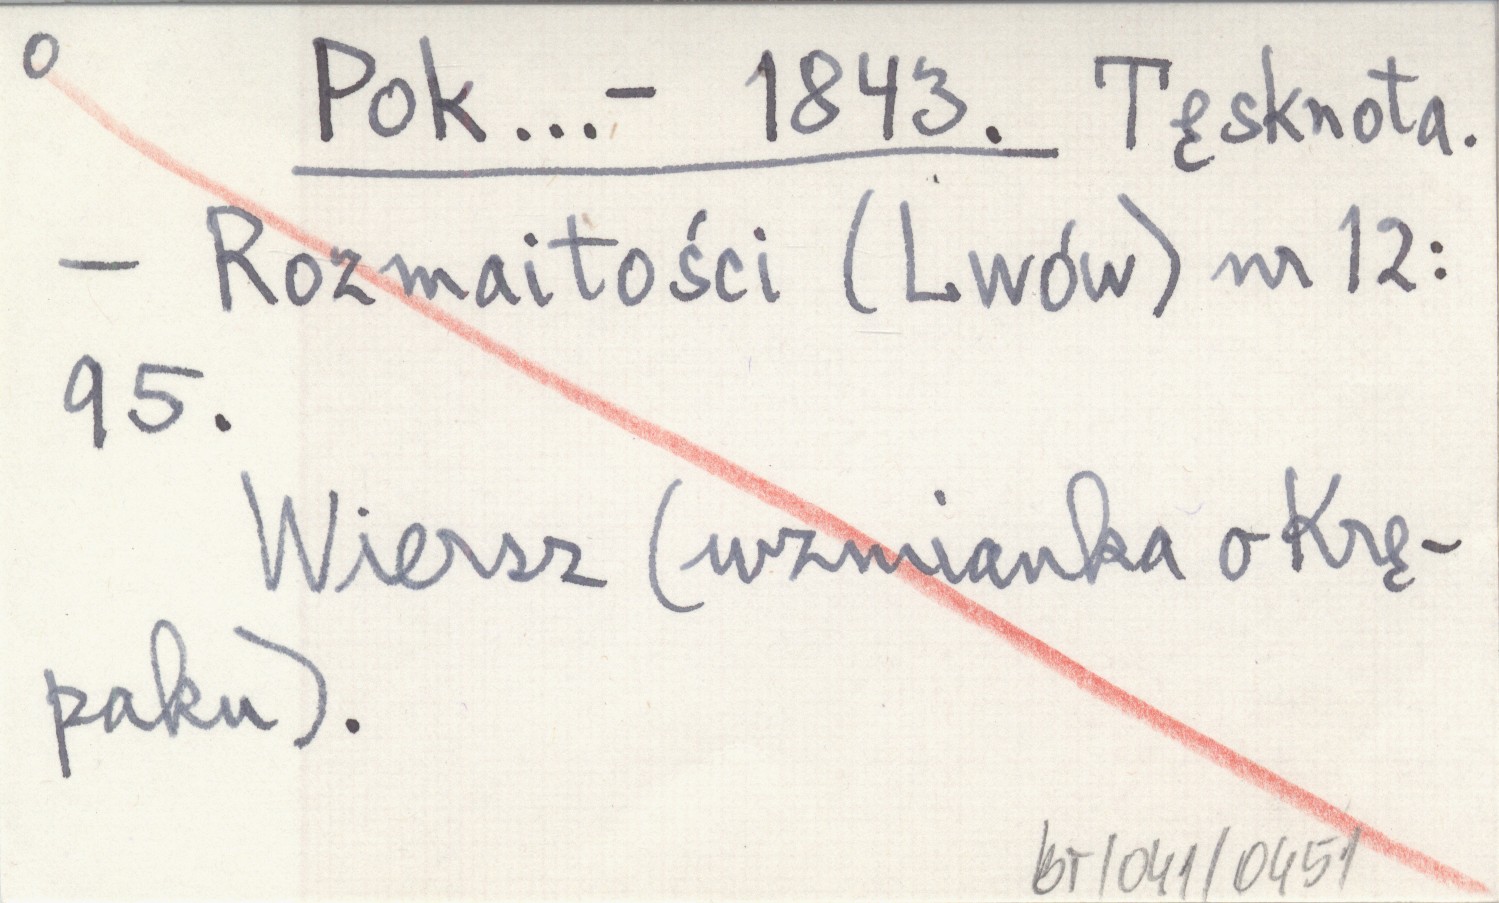 o Pok...- 1843. Tęsknota.
- Rozmaitości (Lwów) nr 12:
95.
Wiersz (wzmianka o Krę-
paku).
bT/041/0451